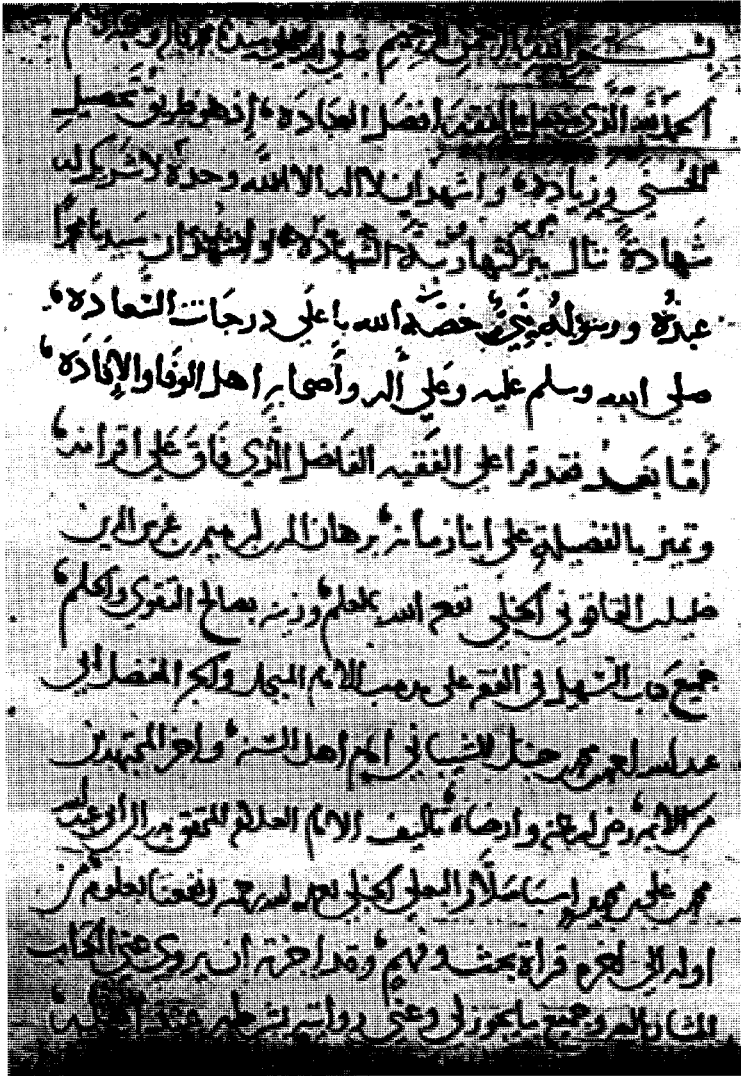 بسم الله الرحمن الرحيم صلى الله على سيدنا محمد وآله وصحبه وسلم
الحمد لله الذي جعل الفقه أفضل العبادة، إذ هو طريق تحصيل
الحسنى وزيادة، وأشهد أن لا إله إلا الله وحده لا شريك له
شهادة ننال ببركتها رتبة الشهادة، وأشهد أن سيدنا محمدا
عبده ورسوله خصه الله بأعلى درجات السعادة،
صلى الله وسلم عليه وعلى آله وأصحابه أهل الوفا والإفادة،
أما بعد فقد قرا علي الفقيه الفاضل الذي فاق على أقرانه،
وتميز بالفضيلة على أبنا زمانه، برهان الدين إبراهيم بن غرس الدين
خليل القاقوني الحنبلي نفعه الله بالعلم، وزينه بصالح التقوى والحلم،
جميع كتاب التسهيل في الفقه على مذهب الإمام المبجل والحبر المفضل أبي
عبد الله أحمد بن محمد بن حنبل الشيباني إمام أهل السنة، وأحد المجتهدين
من الأئمة، رضي الله عنه وأرضاه، تأليف الإمام العلامة المحقق بدر الدين أبو عبد الله
محمد بن علي بن محمد بن اسباسلار البعلي الحنبلي تغمده الله برحمته ونفعنا بعلومه من
أوله إلى آخره قراة بحث وفهم، وقد أجزته أن يروي عني الكتاب
المشار إليه وجميع ما يجوز لي وعني روايته بشرطه عند أهله،